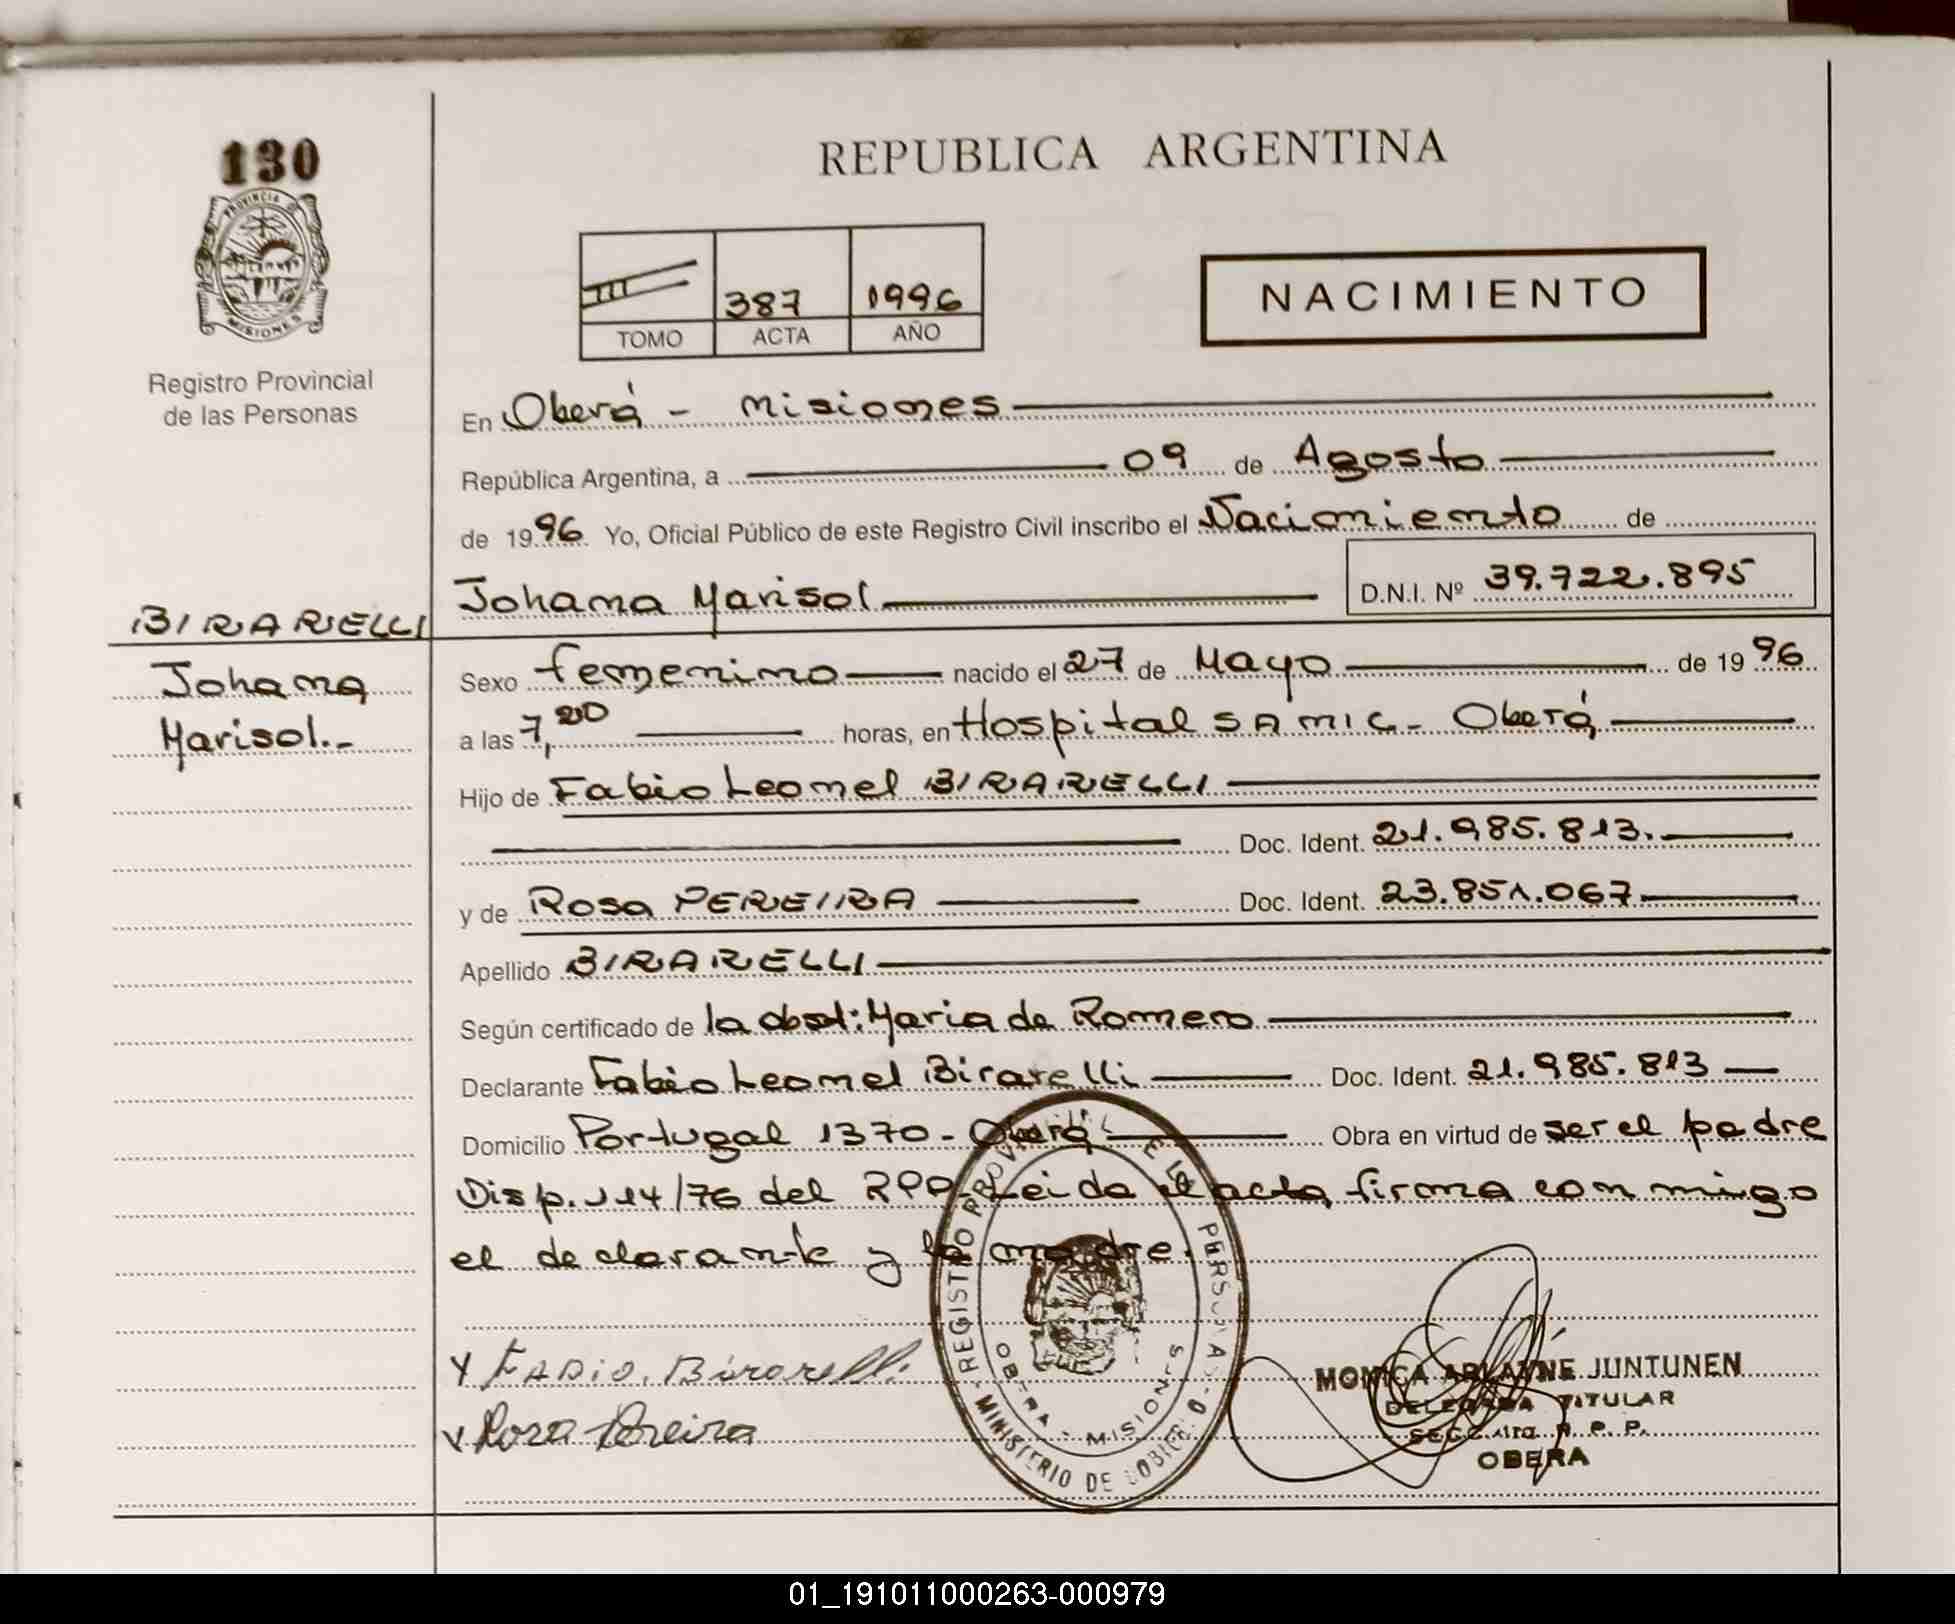 130
PROVINCIA DE
MISIONES
Registro Provincial
de las Personas
REPUBLICA ARGENTINA
387 1996
TOMO ACTA AÑO
NACIMIENTO
En Oberá - Misiones
República Argentina, a 09 de Agosto
de 1996 Yo, Oficial Público de este Registro Civil inscribo el Nacimiento de
Johana Marisol D.N.I. Nº 39.722.895
BIRARELLI
Johana
Marisol.-
Sexo femenino nacido el 27 de Mayo de 1996
a las 7,20 horas, en Hospital SAMIC - Oberá
Hijo de Fabio Leonel BIRARELLI
Doc. Ident. 21.985.813.
y de Rosa PEREIRA Doc. Ident. 23.851.067
Apellido BIRARELLI
Según certificado de la obst: Maria de Romero
Declarante Fabio Leonel Birarelli Doc. Ident. 21.985.813
Domicilio Portugal 1370 - Oberá Obra en virtud de ser el padre
Disp. 114/76 del RPP. Leida el acta, firma con migo
el declarante y la madre.
Fabio. Birarelli
Rosa Pereira
REGISTRO PROVINCIAL DE LAS PERSONAS
MINISTERIO DE GOBIERNO
OBERA - MISIONES
MONICA ARIANNE JUNTUNEN
DELEGADA TITULAR
R. P. P.
OBERA
01_191011000263-000979